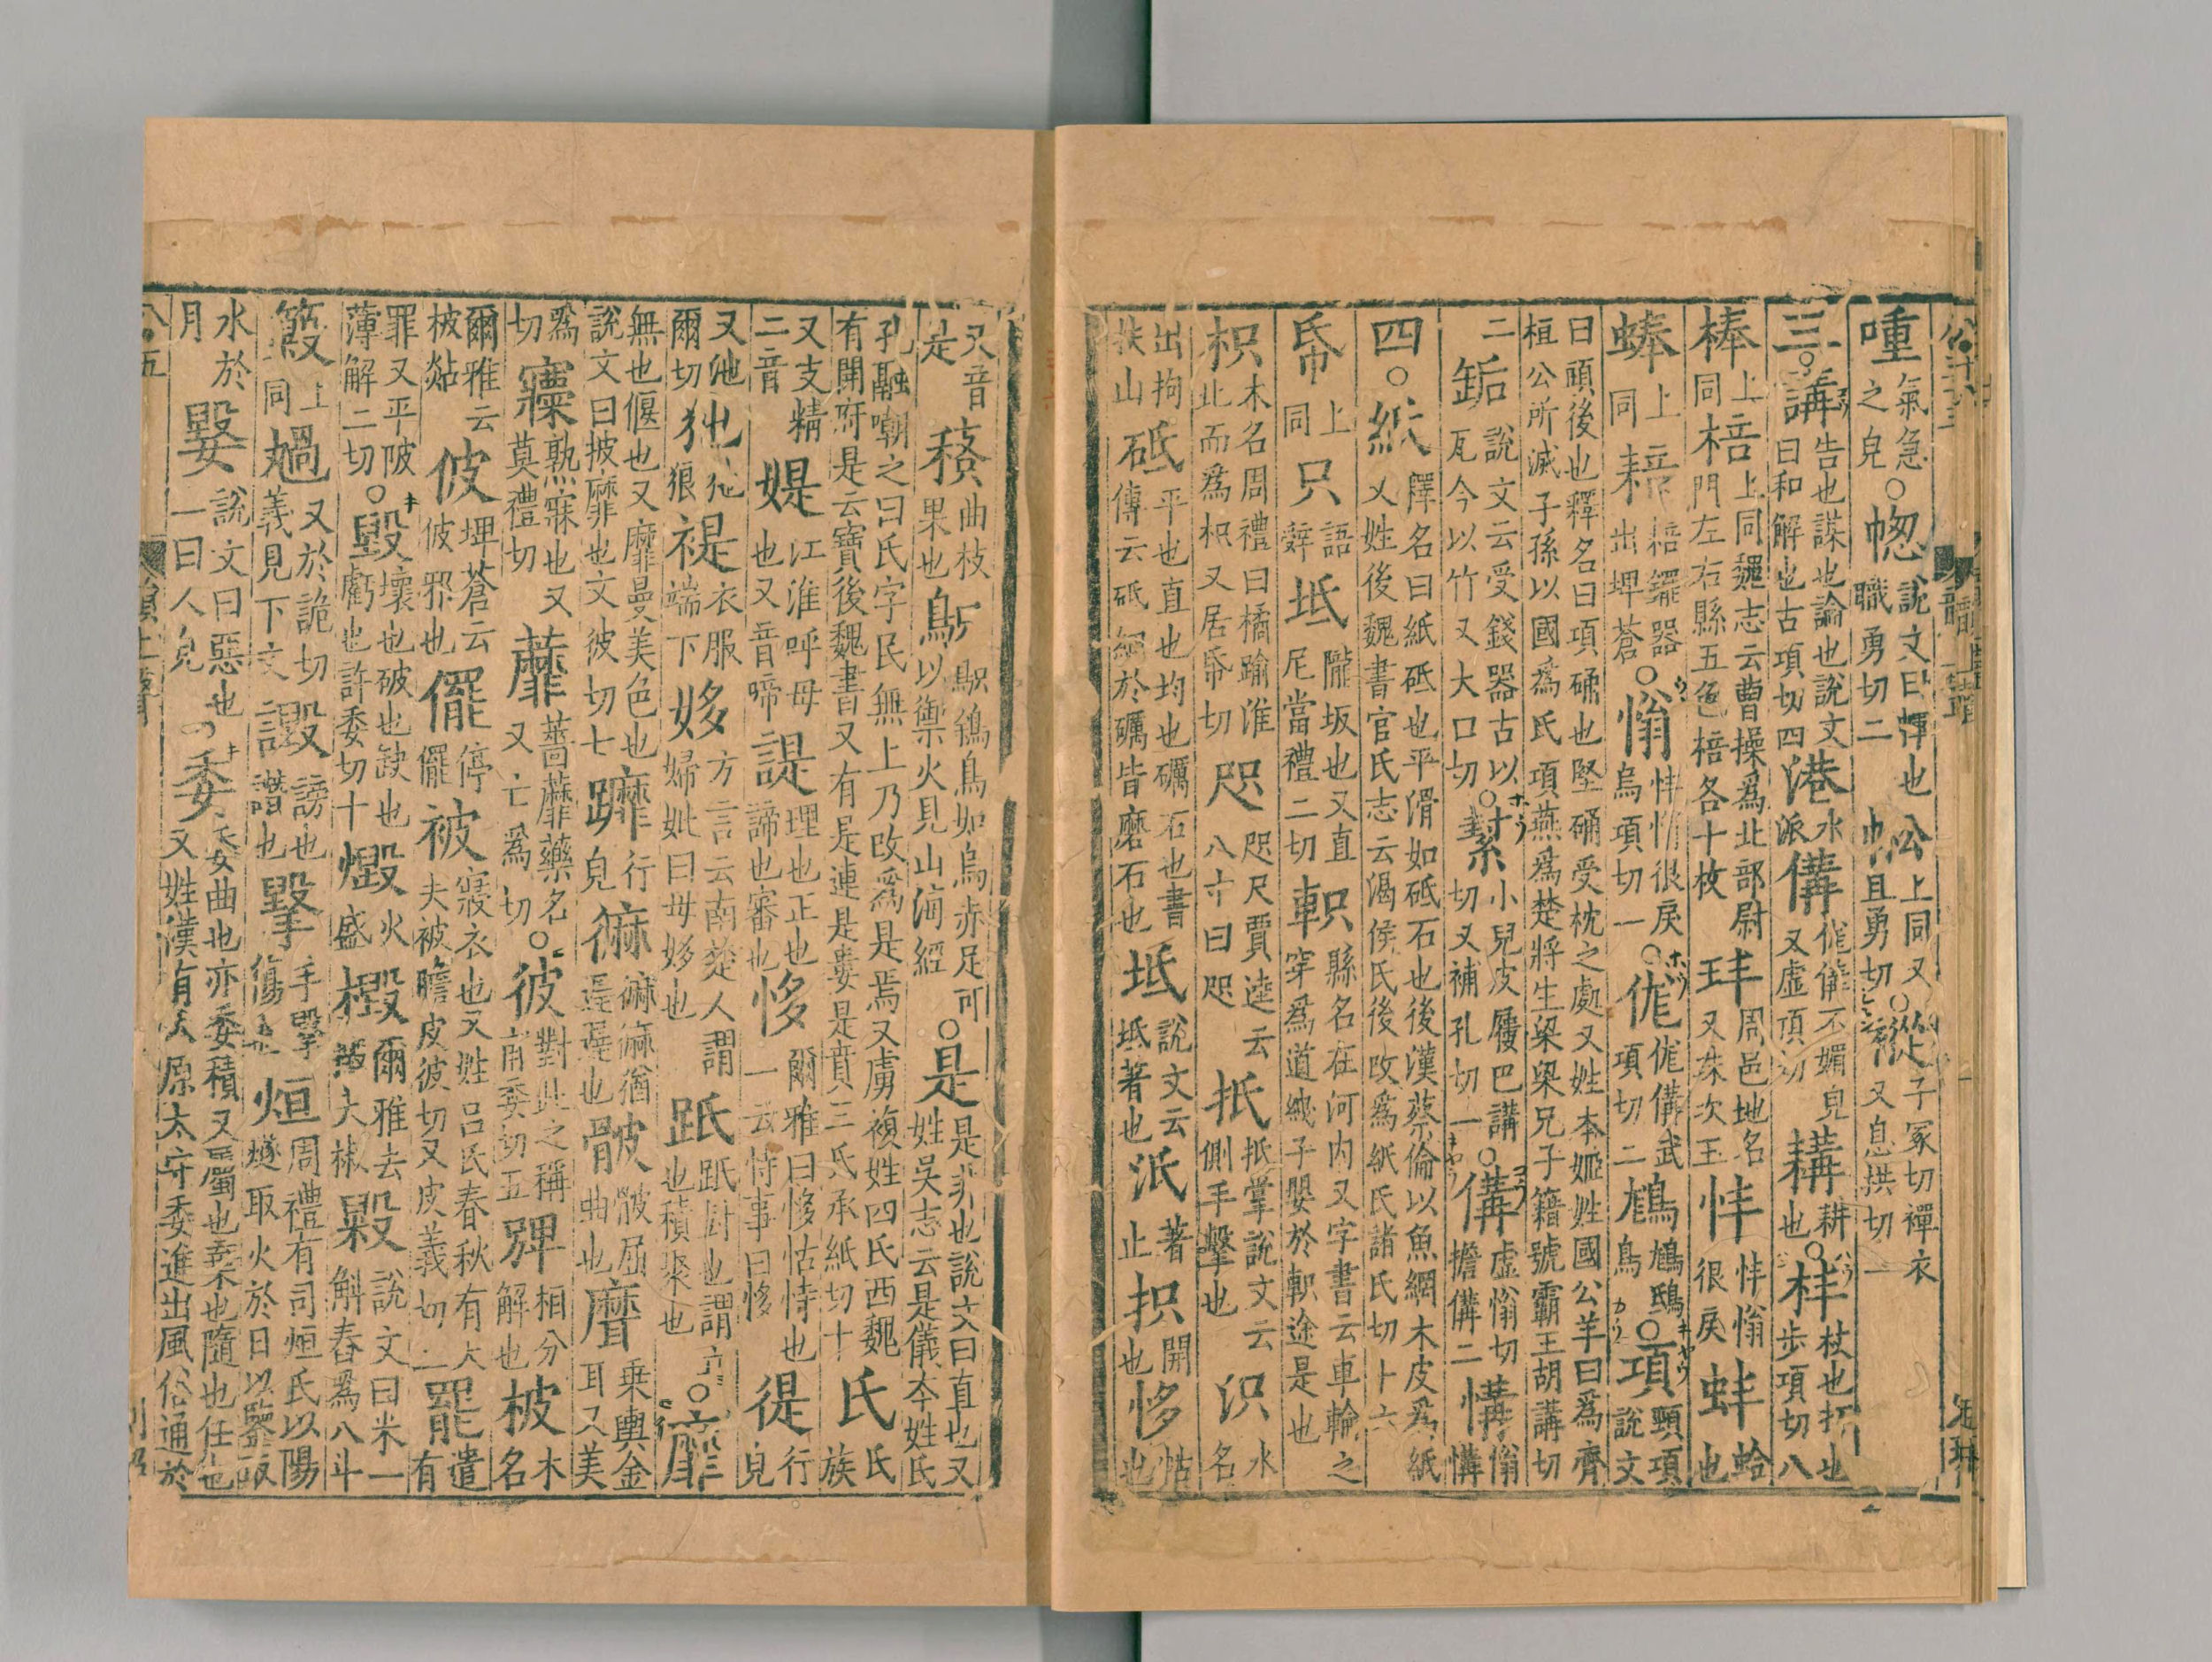 喠氣急之皃○幒說文曰幝也職勇切二㡓上同又且勇切○㢔子冢切襌衣又息拱切一
三○講告也謀也論也說文曰和解也古項切四港水派傋㑃傋不媚皃又虛項切耩耕也○㭋杖也打也步項切八
棒上同棓上同魏志云曹操爲北部尉門左右縣五色棓各十枚玤周邑地名又珠次玉㤶㤶慃很戾蚌蛤也
蜯上同䎧䎧䎱器出埤蒼○慃㤶慃很戾烏項切一○㑃㑃傋武項切二鳪鳪鴟鳥○項頸項說文
曰頭後也釋名曰項确也堅确受枕之處又姓本姬姓國公羊曰爲齊桓公所滅子孫以國爲氏項燕爲楚將生梁梁兄子籍號霸王胡講切
二缿說文云受錢器古以瓦今以竹又大口切○㨍小兒皮屨巴講切又補孔切一○傋虛慃切擔傋二慲慃慲
四○紙釋名曰紙砥也平滑如砥石也後漢蔡倫以魚網木皮爲紙又姓後魏書官氏志云渴侯氏後改爲紙氏諸氏切十六
帋上同只語辝坻隴坂也又直尼當禮二切軹縣名在河內又字書云車輪之穿爲道綫子嬰於軹途是也
枳木名周禮曰橘踰淮北而爲枳又居帋切咫咫尺賈逵云八寸曰咫抵抵掌說文云側手擊也汦水名
出拘扶山砥平也直也均也礪石也書傳云砥細於礪皆磨石也坻說文云坻著也泜著止抧開也恀怙也
又音是䅩曲枝果也鳷鳷鵨鳥如烏赤足可以禦火見山海經○是是非也說文曰直也又姓吳志云是儀本姓氏
孔融嘲之曰氏字民無上乃改爲是焉又虜複姓四氏西魏有開府是云寶後魏書又有是連是婁是賁三氏承紙切十氏氏族
又支精二音媞江淮呼母也又音啼諟理也正也諦也審也恀爾雅曰恀怙恃也一云恃事曰恀徥行皃
又池爾切㹝㹝狼褆衣服端下姼方言云南楚人謂婦妣曰母姼也䟗䟗廚也謂積聚也○靡
無也偃也又靡曼美色也說文曰披靡也文彼切七䠋行皃䌕䌕䌕猶遲遲也骳骳屈曲也䃺乗輿金耳又美
爲切䆲熟寐也又莫禮切蘼蔷蘼藥名又亡爲切○彼對此之稱甫委切五𢁀相分解也柀木名
爾雅云柀煔佊埤蒼云佊邪也㒒停㒒被寢衣也又姓呂氏春秋有大夫被瞻皮彼切又皮義切二罷遣有
罪又平陂薄解二切○毀壞也破也缺也虧也許委切十燬火盛檓爾雅云檓大椒毇說文曰米一斛舂爲八斗
𥽿上同䞈又於詭切義見下文譭謗也譖也擊手擊傷也烜周禮有司烜氏以陽燧取火於日以鑒取
水於月嫛說文曰惡也一曰人皃○委委曲也亦委積又屬也棄也隨也任也又姓漢有太原太守委進出風俗通於